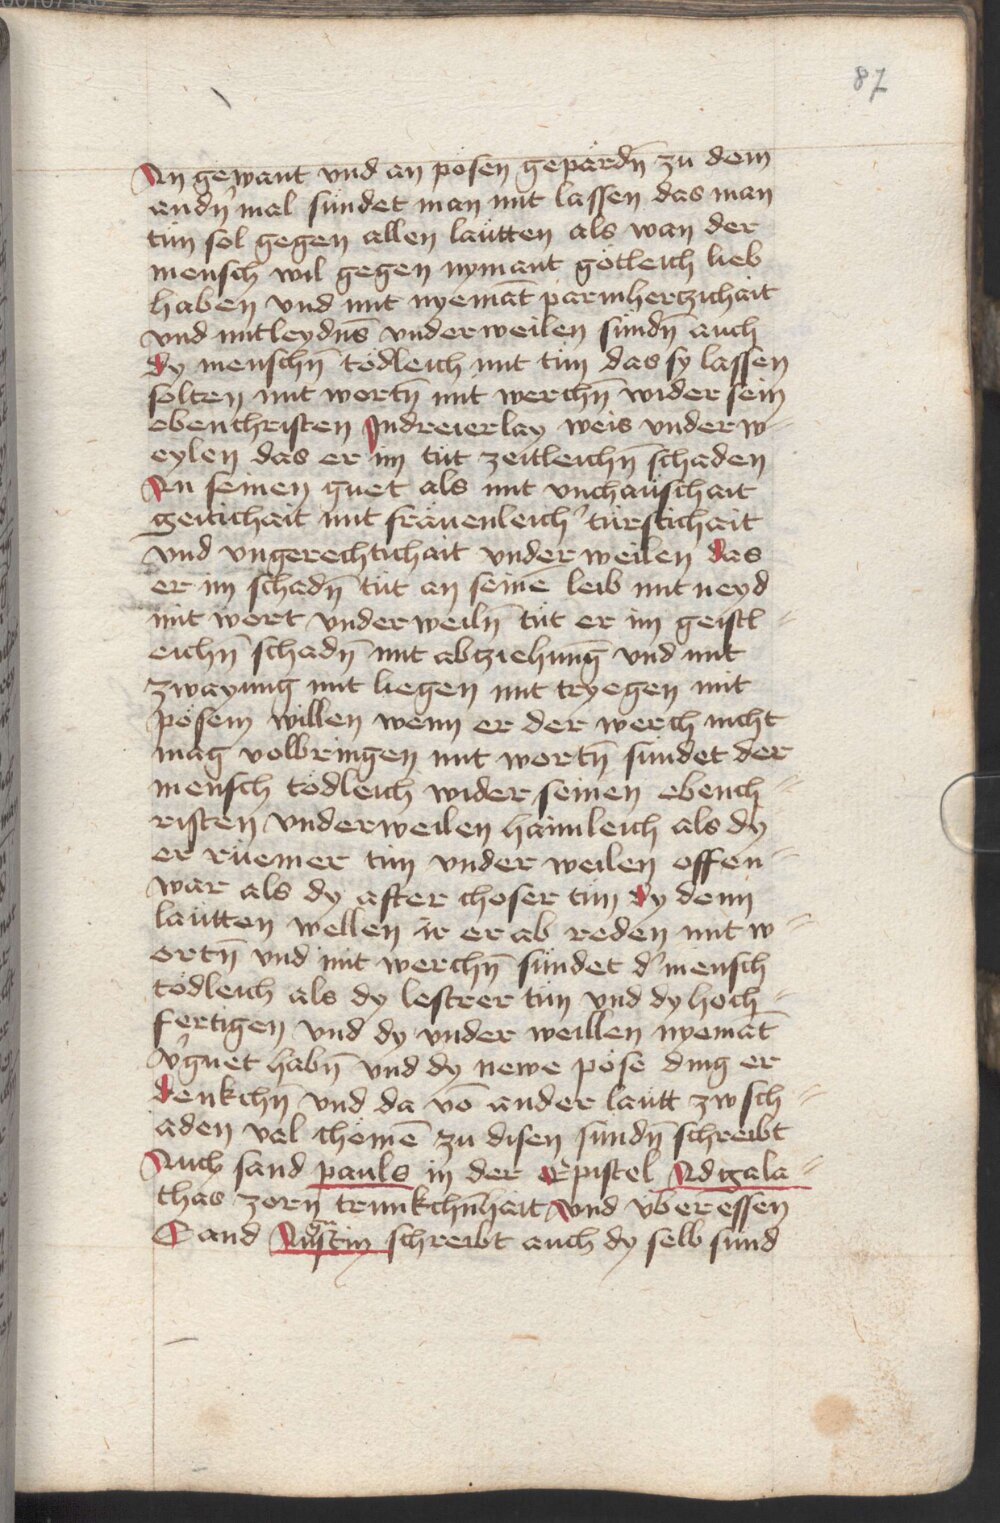 87
An gewant vnd an pösen gepärdn̄ zu dem
andn̄ mal sündet man mit lassen das man
tün sol gegen allen läutten als wan der
mensch wil gegen nymant götleich lieb
haben vnd mit nyemāt parmhertzichait
vnd mitleydn̄s vnderweilen sündn̄ auch
dy menschn̄ tödleich mit tün das sy lassen
solten mit wortn̄ mit werchn̄ wider sein
ebenchristen Indreierlay weis vnderw=
eylen das er im tüt zeitleichn̄ schaden
An seinen guet als mit vnchäuschait
geitichait mit fräuenleich' türstichait
vnd vngerechtichait vnderweilen das
er im schadn̄ tüt an seinē leib mit neyd
mit wort vnderweiln̄ tüt er im geistl=
eichn̄ schadn̄ mit abziehūng vnd mit
zwayung mit liegen mit tryegen mit
pösem willen wenn er der werch nicht
mag volbringen mit wortn̄ sundet der
mensch tödleich wider seinen ebench=
risten vnderweilen haimleich als dy
er rüemer tün vnder weilen offen=
war als dy after choser tün dy denn
läutten wellen ir er ab reden mit w=
ortn̄ vnd mit werchn̄ sündet d' mensch
tödleich als dy lestrer tün vnd dy hoch=
fertigen vnd dy vnder weillen nyemāt
v'guet habn̄ vnd dy newe pöse ding er
denkchn̄ vnd da vō ander läutt zw sch=
aden vel chömē zu disen sündn̄ schreibt
Auch sand pauls in der Epistel Ad gala=
thas zorn trunkchn̄hait vnd vberessen
Sand Austin schreibt auch dy selb sünd